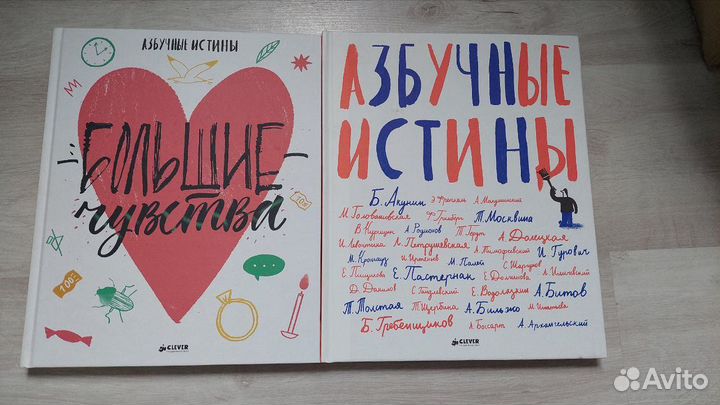 АЗБУЧНЫЕ ИСТИНЫ
БОЛЬШИЕ
чувства
100
100
CLEVER
АЗБУЧНЫЕ
ИСТИНЫ
Б. Акунин Э. Френкель А. Макушинский
М. Голованивская Ф. Гримберг Т. Москвина
В. Курицын А. Родионов Т. Гердт А. Долецкая
И. Левонтина Л. Петрушевская А. Тимофеевский И. Гурович
М. Кронгауз И. Иртеньев М. Палей С. Шаргунов
Е. Пищикова Е. Пастернак Е. Долгинова А. Иличевский
Д. Данилов С. Гандлевский Е. Водолазкин А. Битов
Т. Толстая Т. Щербина А. Бильжо М. Игнатова
Б. Гребенщиков А. Боссарт А. Архангельский
CLEVER
Avito